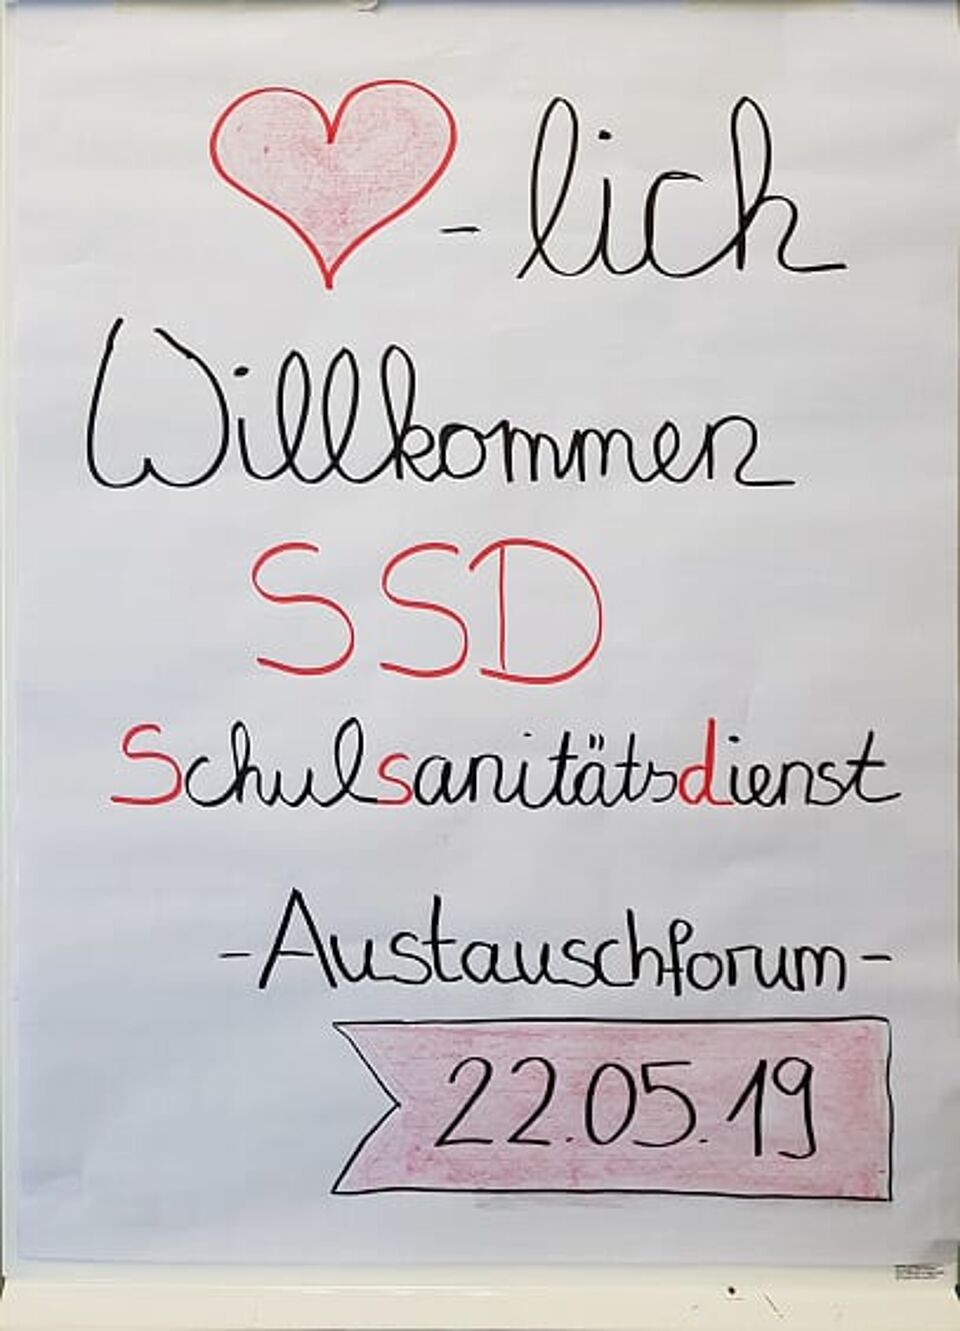 -lich
Willkommen
SSD
Schulsanitätsdienst
-Austauschforum-
22.05.19